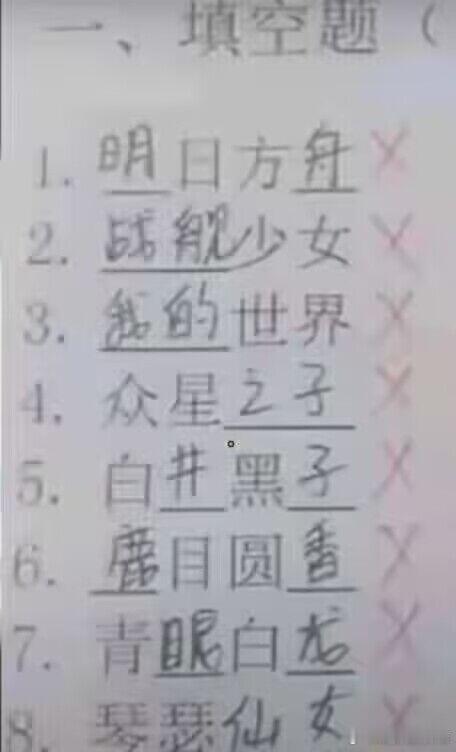 一、填空题（
1. 明日方舟 ×
2. 战舰少女 ×
3. 我的世界 ×
4. 众星之子 ×
5. 白井黑子 ×
6. 鹿目圆香 ×
7. 青眼白龙 ×
8. 琴瑟仙女 ×